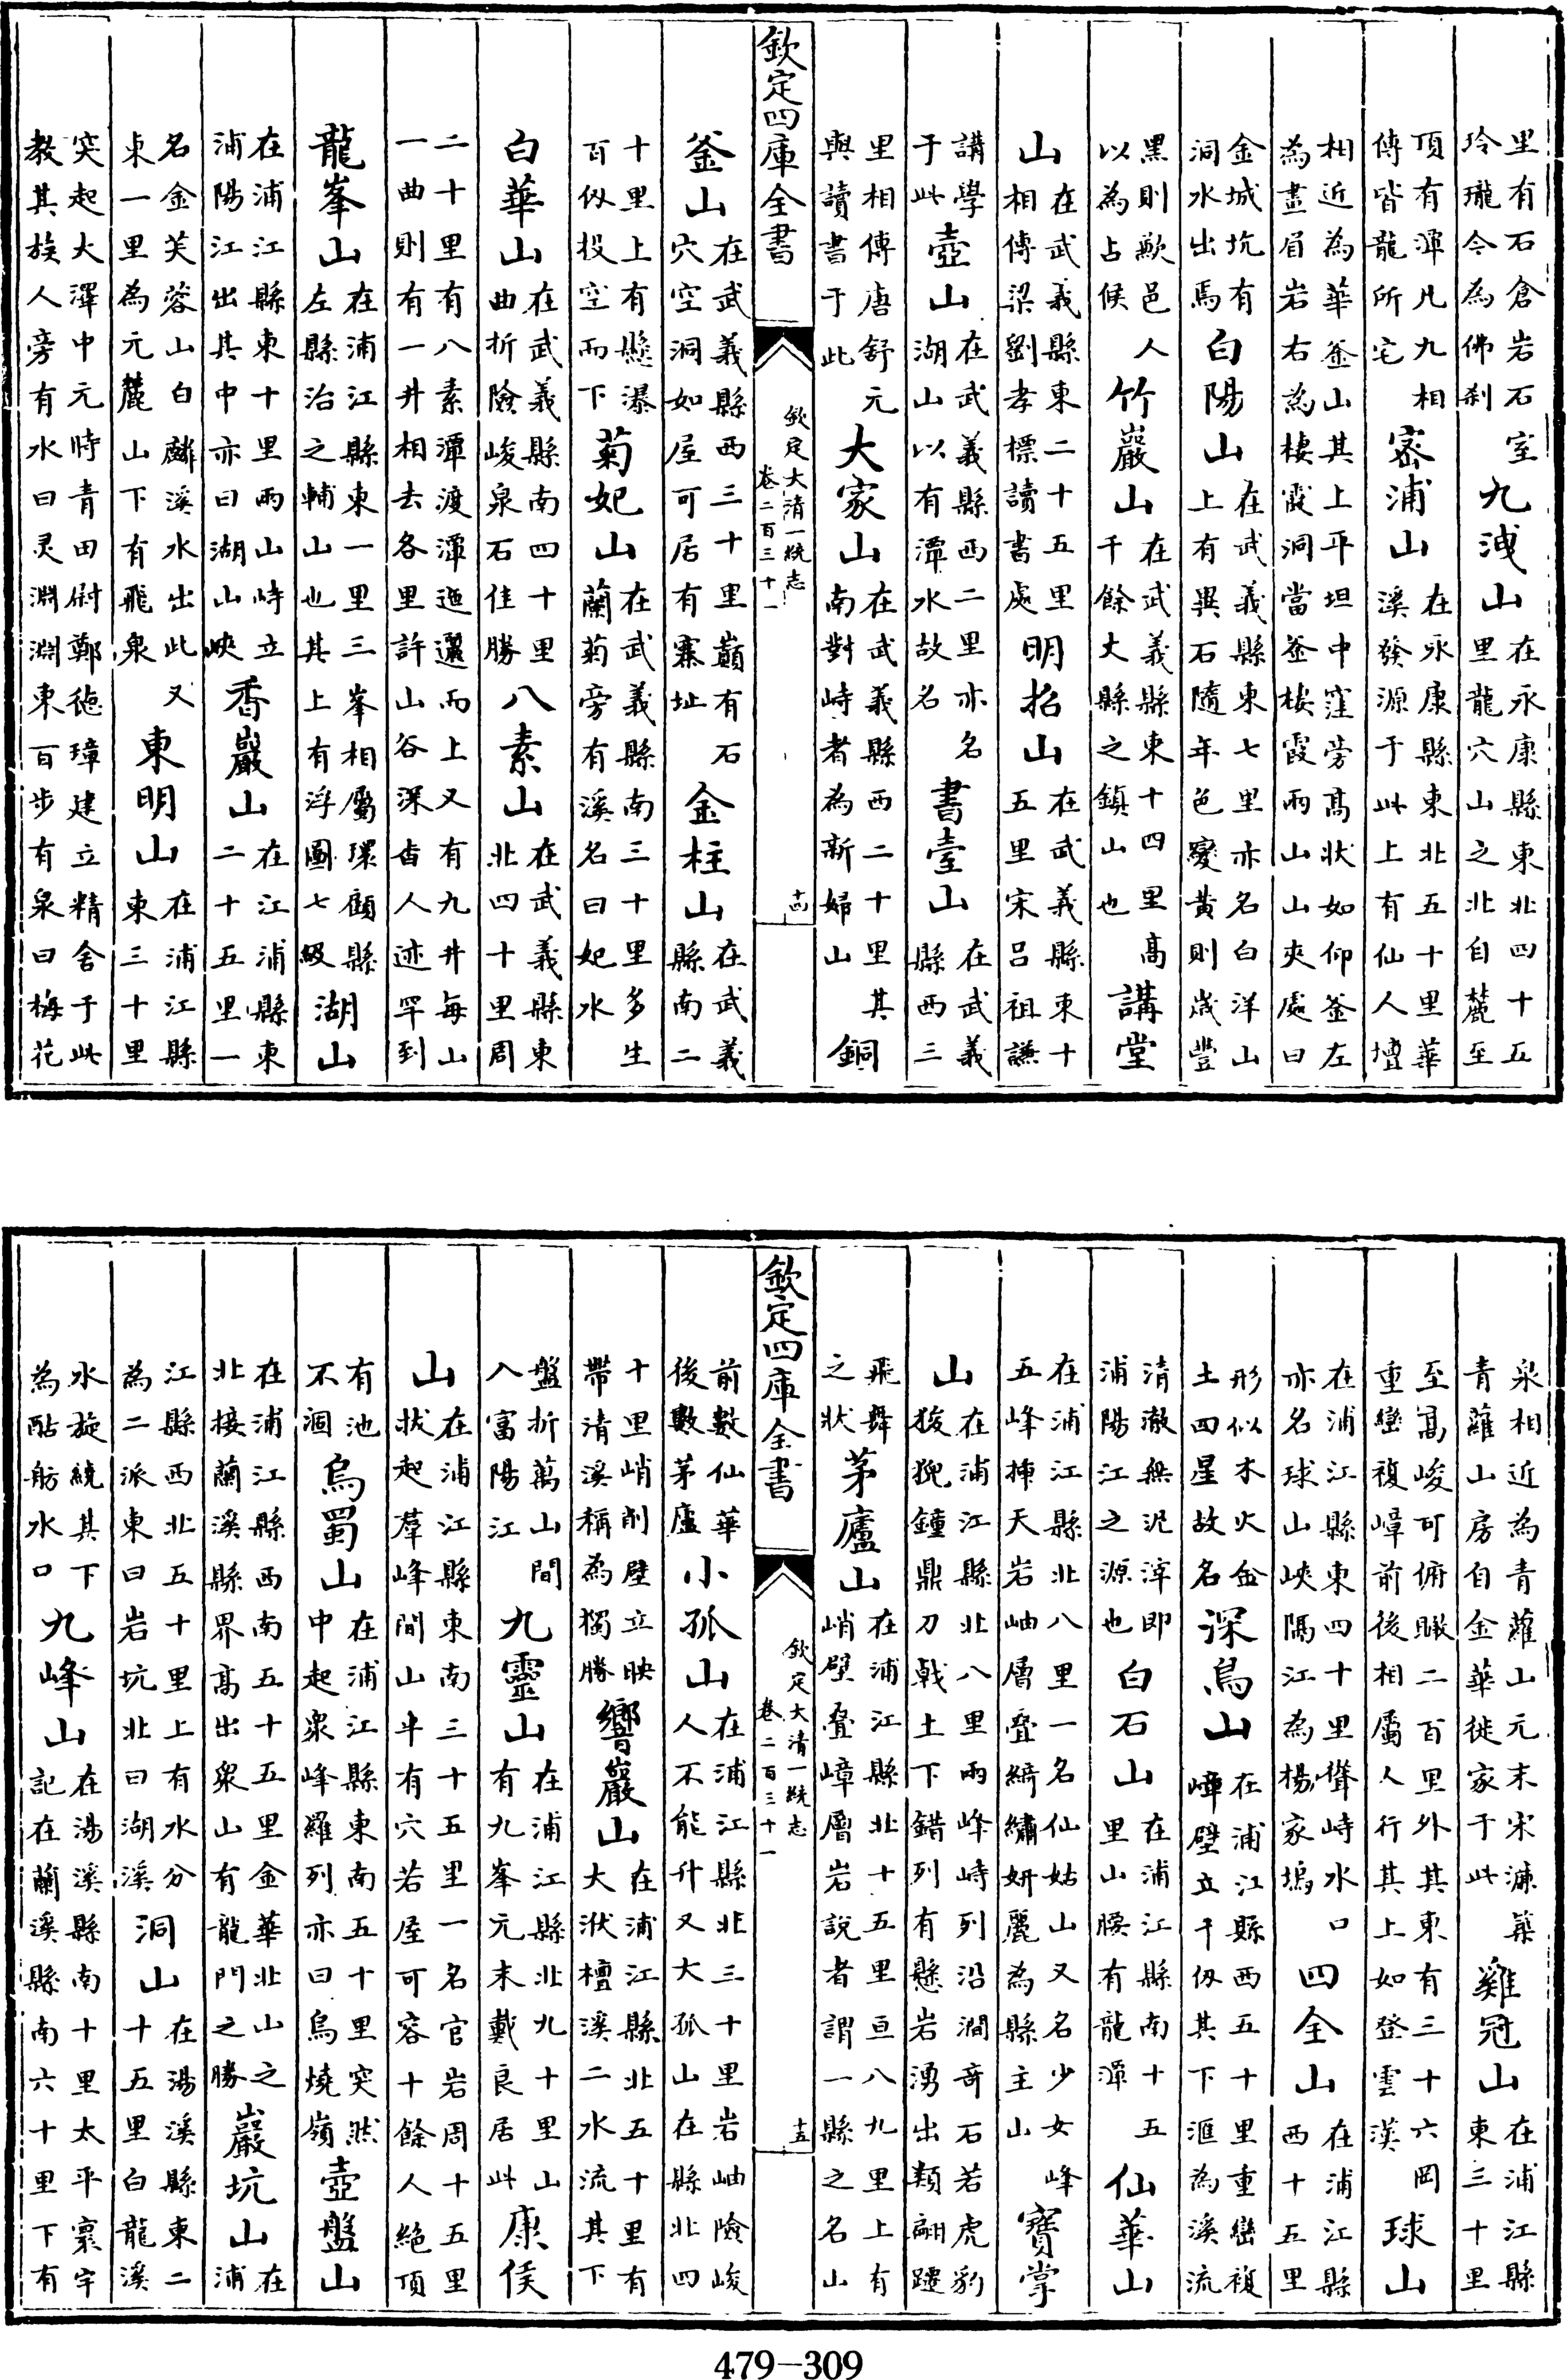 里有石倉岩石室玲瓏今為佛刹九洩山在永康縣東北四十五里龍穴山之北自麓至
頂有潭凡九相傳皆龍所宅密浦山在永康縣東北五十里華溪發源于此上有仙人壇
相近為華釜山其上平坦中窪旁高狀如仰釜左為畫眉岩右為棲霞洞當釜棲霞兩山山夾處曰
金城坑有洞水出馬白陽山在武義縣東七里亦名白洋山上有異石隨年色變黃則歲豐
黑則歉邑人以為占候竹巖山在武義縣東十四里高千餘丈縣之鎮山也講堂
山在武義縣東二十五里相傳梁劉孝標讀書處明招山在武義縣東十五里宋呂祖謙
講學于此壺山在武義縣西二里亦名湖山以有潭水故名書臺山在武義縣西三
里相傳唐舒元輿讀書于此大家山在武義縣西二十里其南對峙者為新婦山銅
欽定四庫全書 欽定大清一統志 卷二百三十一 十四
釜山在武義縣西三十里巔有石穴空洞如屋可居有寨址金柱山在武義縣南二
十里上有懸瀑百仞投空而下菊妃山在武義縣南三十里多生蘭菊旁有溪名曰妃水
白華山在武義縣南四十里曲折險峻泉石佳勝八素山在武義縣東北四十里周
二十里有八素潭渡潭迤邐而上又有九井每山一曲則有一井相去各里許山谷深杳人迹罕到
龍峯山在浦江縣東一里三峯相屬環顧縣左縣治之輔山也其上有浮圖七級湖山
在浦江縣東十里兩山峙立浦陽江出其中亦曰湖山峽香巖山在江浦縣東二十五里一
名金芙蓉山白麟溪水出此又東一里為元麓山下有飛泉東明山在浦江縣東三十里
突起大澤中元時青田尉鄭德璋建立精舍于此教其族人旁有水曰灵淵淵東百步有泉曰梅花
泉相近為青蘿山元末宋濂築青蘿山房自金華徙家于此雞冠山在浦江縣東三十里
至高峻可俯瞰二百里外其東有三十六岡重巒複嶂前後相屬人行其上如登雲漢球山
在浦江縣東四十里聳峙水口亦名球山峽隔江為楊家塢四全山在浦江縣西十五里
形似木火金土四星故名深鳥山在浦江縣西五十里重巒複嶂壁立千仞其下滙為溪流
清澈無泥滓即浦陽江之源也白石山在浦江縣南十五里山腰有龍潭仙華山
在浦江縣北八里一名仙姑山又名少女峰五峰揷天岩岫層疊綺繡妍麗為縣主山寶掌
山在浦江縣北八里兩峰峙列沿澗奇石若虎豹狻猊鐘鼎刀戟土下錯列有懸岩湧出類翩躚
飛舞之狀茅廬山在浦江縣北十五里亘八九里上有峭壁叠嶂層岩說者謂一縣之名山
欽定四庫全書 欽定大清一統志 卷二百三十一 十五
前數仙華後數茅廬小孤山在浦江縣北三十里岩岫險峻人不能升又大孤山在縣北四
十里峭削壁立映帶清溪稱為獨勝響巖山在浦江縣北五十里有大洑檀溪二水流其下
盤折萬山間入富陽江九靈山在浦江縣北九十里山有九峯元末戴良居此康侯
山在浦江縣東南三十五里一名官岩周十五里狀起羣峰間山半有穴若屋可容十餘人絕頂
有池不涸烏蜀山在浦江縣東南五十里突然中起衆峰羅列亦曰烏燒嶺壺盤山
在浦江縣西南五十五里金華北山之北接蘭溪縣界高出衆山有龍門之勝巖坑山在浦
江縣西北五十里上有水分為二派東曰岩坑北曰湖溪洞山在湯溪縣東二十五里白龍溪
水旋繞其下為酤舫水口九峰山在湯溪縣南十里太平寰宇記在蘭溪縣南六十里下有
479-309